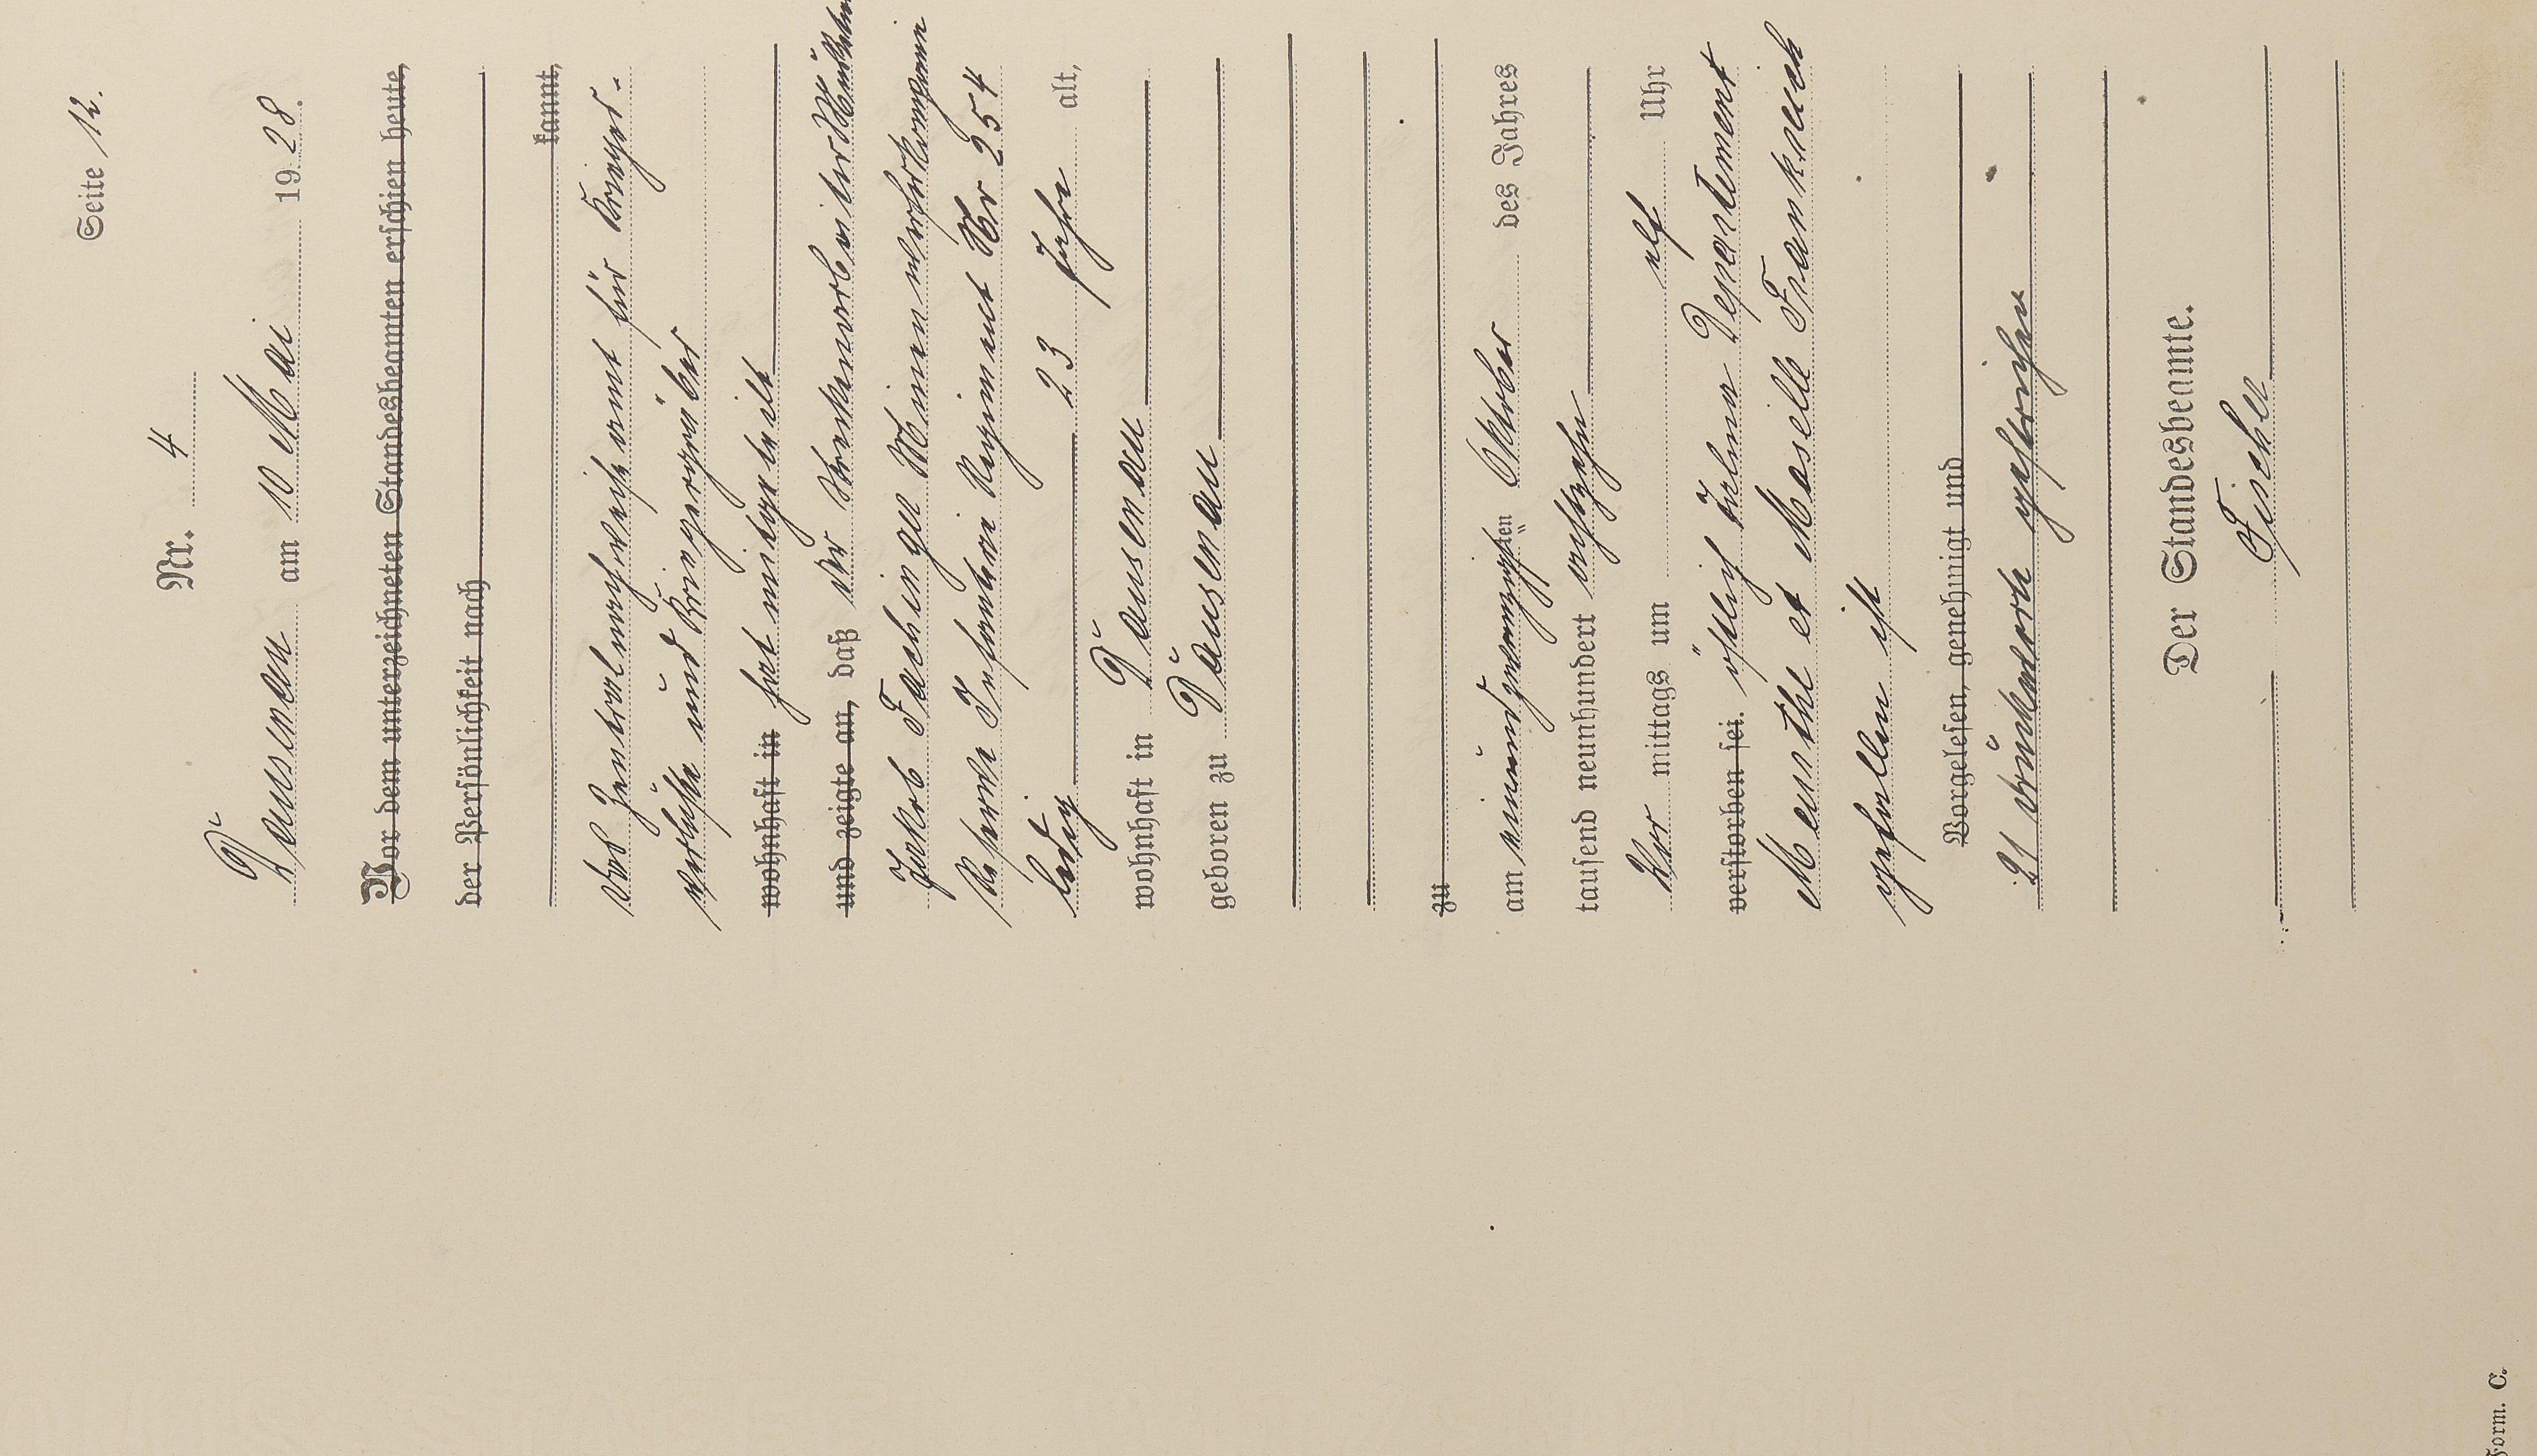 Seite 12.
Nr. 4
Dausenau am 10 Mai 1928.
Vor dem unterzeichneten Standesbeamten erschien heute,
der Persönlichkeit nach
kannt,
Das Zentralnachweiseamt für Krieger-
verluste und Kriegergräber
wohnhaft in hat mitgeteilt
und zeigte an, daß der Streckenarbeiter
Jakob Fachinger Minenwerferkompanie
Reserve Infanterie Regiment Nr 254
ledig 23 Jahre alt,
wohnhaft in Dausenau
geboren zu Dausenau
zu
am einundzwanzigsten Oktober des Jahres
tausend neunhundert achtzehn
Vor mittags um elf Uhr
verstorben sei. östlich Departement
Meurthe et Moselle Frankreich
gefallen ist
Vorgelesen, genehmigt und
21 Druckworte gestrichen
Der Standesbeamte.
Fischer
Form. C.